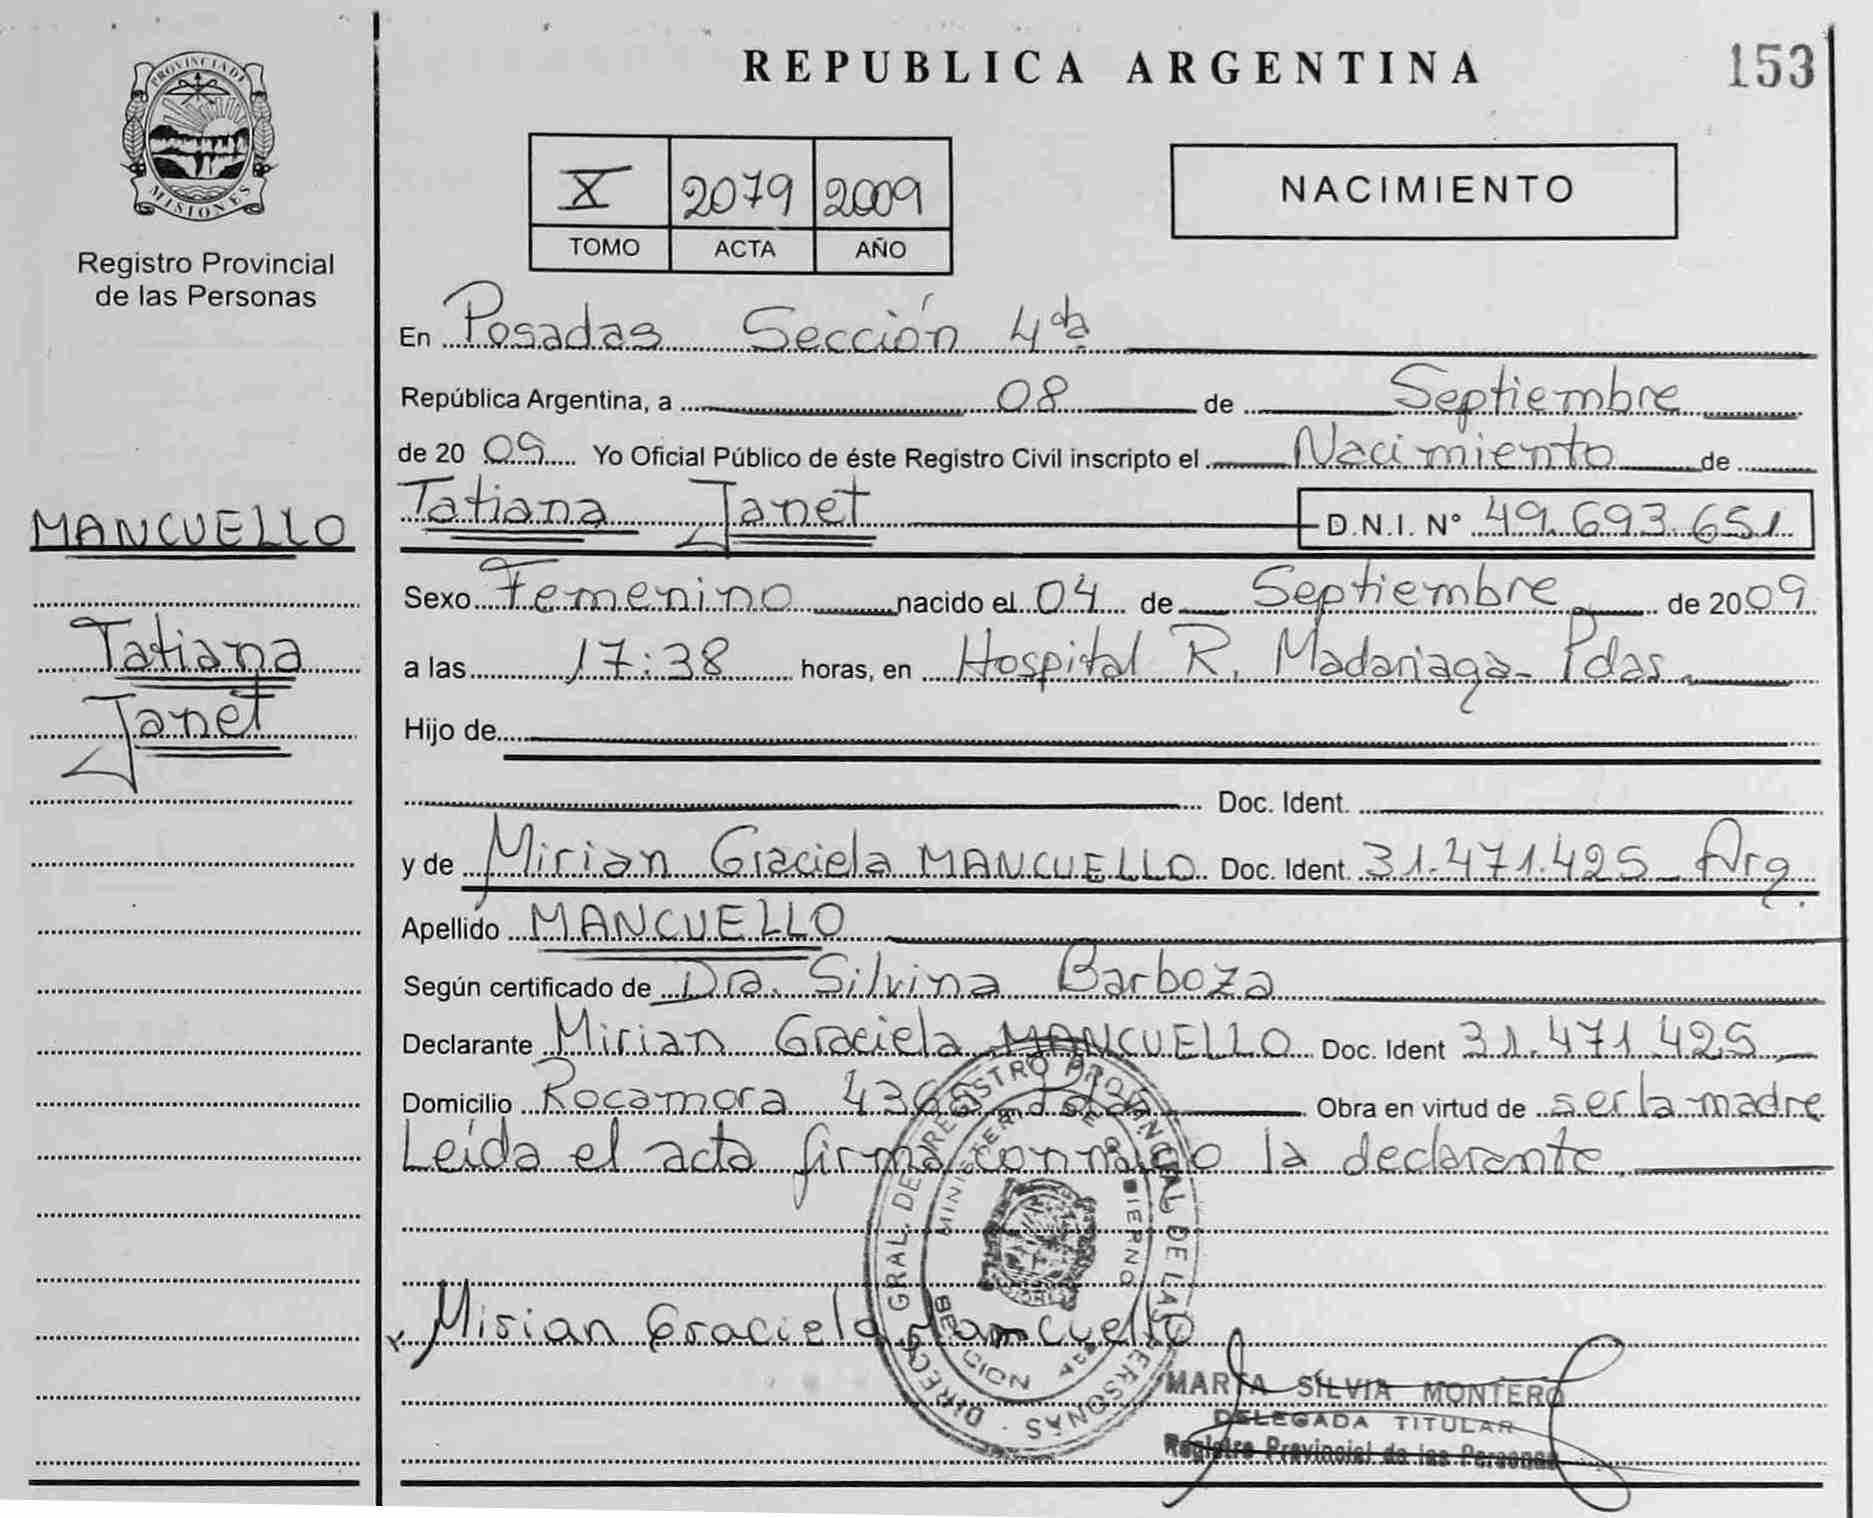 REPUBLICA ARGENTINA
153
PROVINCIA DE
MISIONES
Registro Provincial
de las Personas
X 2079 2009
TOMO ACTA AÑO
NACIMIENTO
En Posadas Sección 4ta
República Argentina, a 08 de Septiembre
de 2009 Yo Oficial Público de éste Registro Civil inscripto el Nacimiento de
MANCUELLO
Tatiana
Janet
Tatiana Janet D.N.I. Nº 49.693.651
Sexo Femenino nacido el 04 de Septiembre de 2009
a las 17:38 horas, en Hospital R. Madariaga - Pdas.
Hijo de
Doc. Ident.
y de Mirian Graciela MANCUELLO Doc. Ident. 31.471.425 - Arg.
Apellido MANCUELLO
Según certificado de Dra. Silvina Barboza
Declarante Mirian Graciela MANCUELLO Doc. Ident 31.471.425
Domicilio Rocamora Obra en virtud de ser la madre
Leída el acta firma conmigo la declarante
Mirian Graciela Mancuello
DIRECC. GRAL. DE REGISTRO PROVINCIAL DE LAS PERSONAS
MINISTERIO DE GOBIERNO
SECCION 4ta
MARTA SILVIA MONTERO
DELEGADA TITULAR
Registro Provincial de las Personas